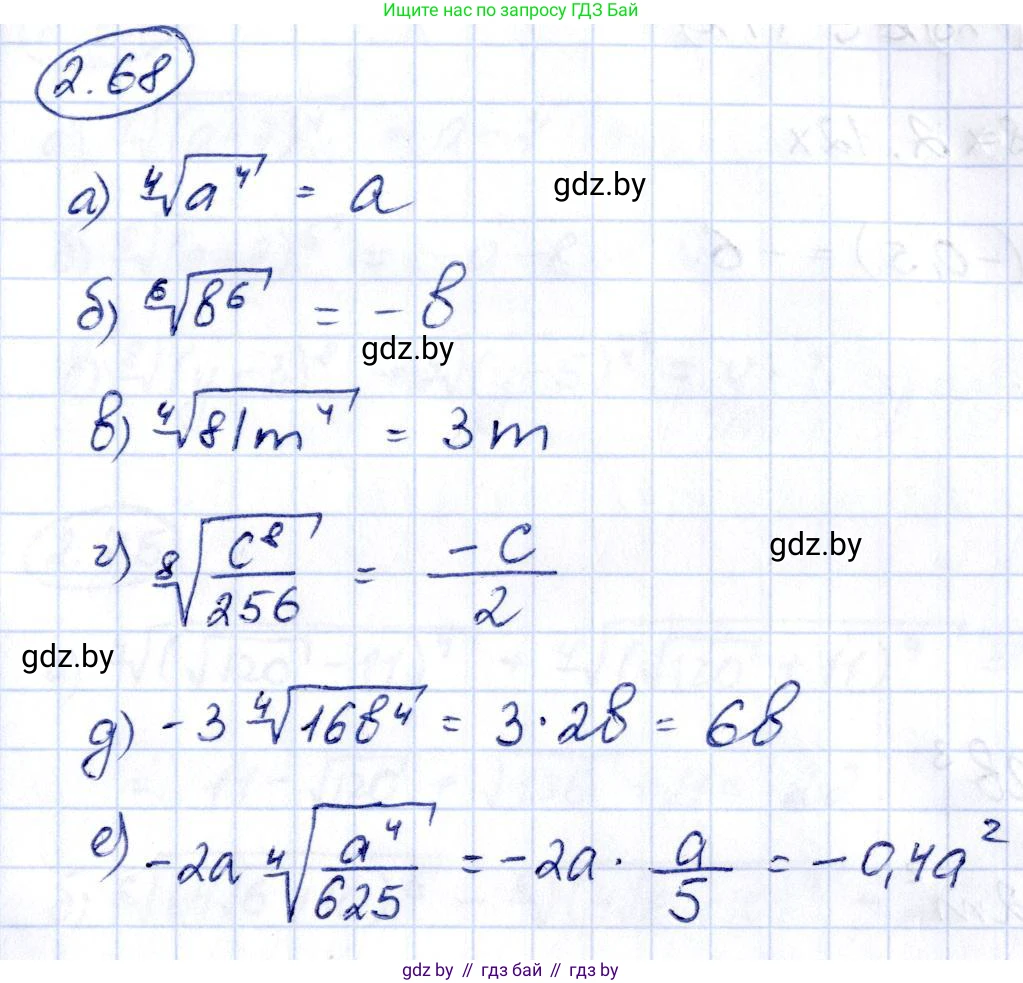 Ищите нас по запросу ГДЗ Бай
2.68
а) ⁴√(a⁴) = a
gdz.by
б) ⁶√(b⁶) = -b
gdz.by
в) ⁴√(81m⁴) = 3m
г) ⁸√(c⁸/256) = -c/2
gdz.by
gdz.by
д) -3 ⁴√(16b⁴) = 3·2b = 6b
е) -2a ⁴√(a⁴/625) = -2a · a/5 = -0,4a²
gdz.by // гдз бай // гдз by